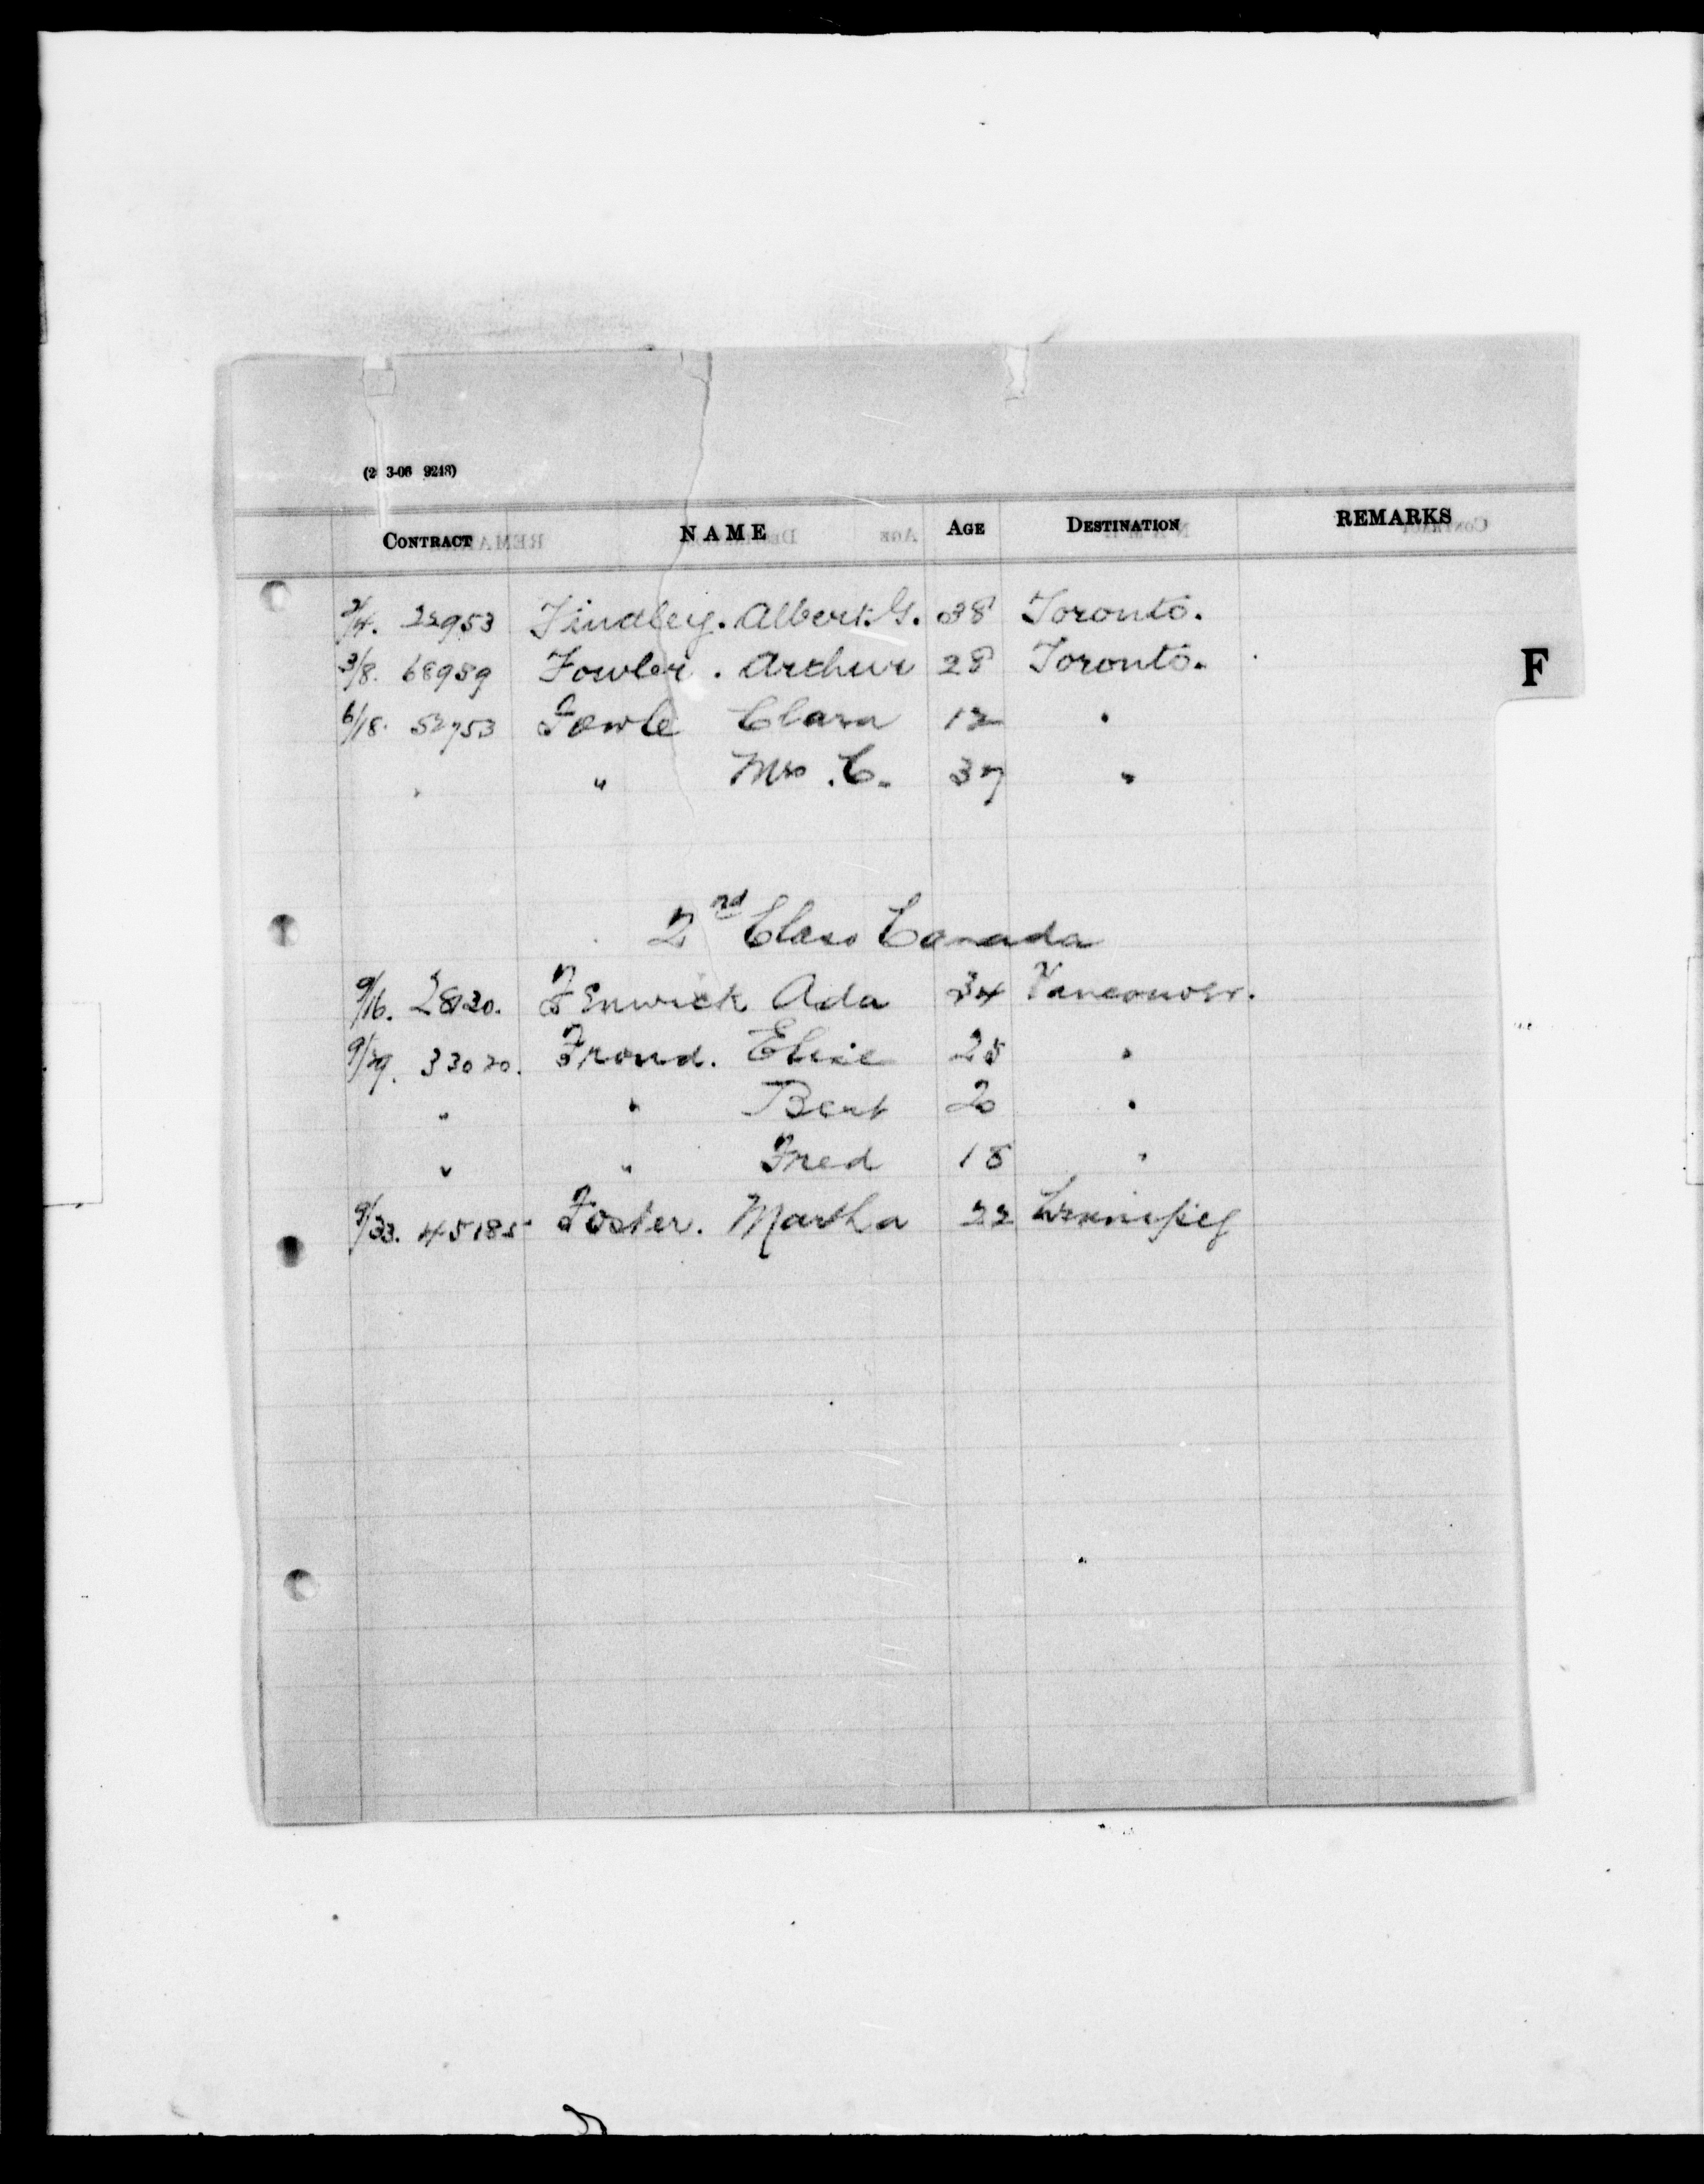 (2 3-06 9248)
CONTRACT NAME AGE DESTINATION REMARKS
2/4. 22953 Findley. Albert. G. 38 Toronto.
3/8. 68959 Fowler. Arthur 28 Toronto.
F
6/18. 52753 Fowle Clara 12 "
" " Mrs. C. 37 "
2nd Class Canada
9/16. 28120. Fenwick Ada 34 Vancouver.
9/29. 33020. Frond. Elsie 25 "
" " Bert 20 "
" " Fred 18 "
9/33. 45185 Foster. Martha 22 Winnipeg